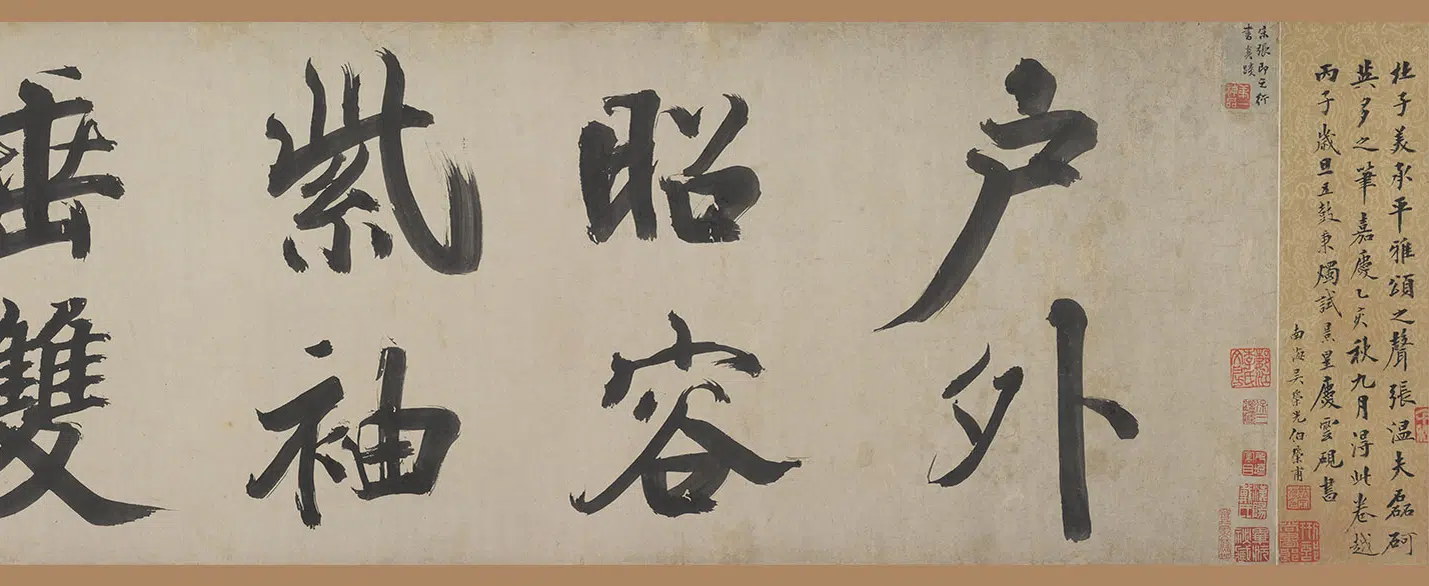 杜子美承平雅頌之聲張温夫磊砢
英多之筆嘉慶乙亥秋九月得此卷越
丙子歲旦五鼓秉燭試景星慶雲硯書
南海吳榮光伯榮甫
宋張即之行
書真蹟
户外
昭容
紫袖
垂雙